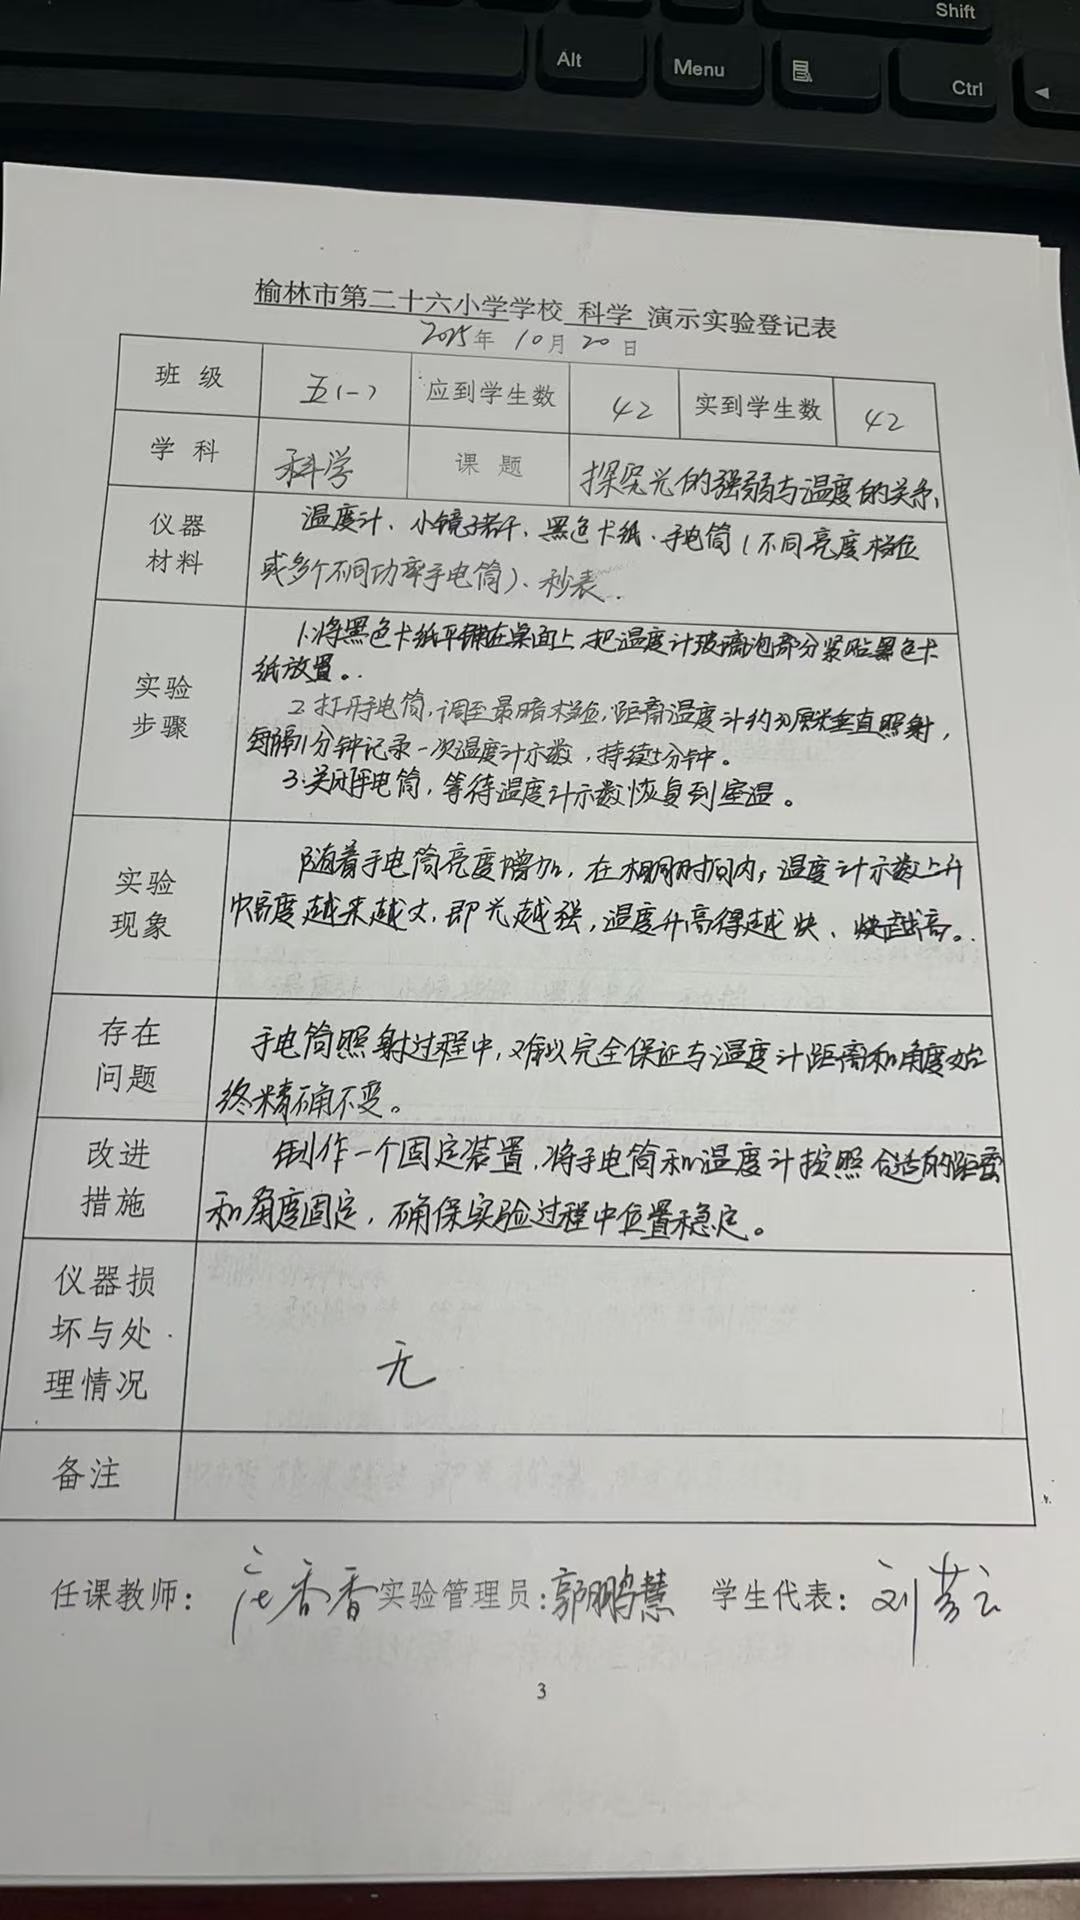 Shift
Alt
Menu
Ctrl
榆林市第二十六小学学校 科学 演示实验登记表
2025年 10月 20日
班 级 五(一) 应到学生数 42 实到学生数 42
学 科 科学 课 题 探究光的强弱与温度的关系
仪器
材料
温度计、小镜子若干、黑色卡纸、手电筒(不同亮度档位
或多个不同功率手电筒)、秒表.
实验
步骤
1.将黑色卡纸平铺在桌面上,把温度计玻璃泡部分紧贴黑色卡
纸放置。
2.打开手电筒,调至最暗档位,距离温度计约30厘米垂直照射,
每隔1分钟记录一次温度计示数,持续5分钟。
3.关闭手电筒,等待温度计示数恢复到室温。
实验
现象
随着手电筒亮度增加,在相同时间内,温度计示数上升
幅度越来越大,即光越强,温度升高得越快、越高。
存在
问题
手电筒照射过程中,难以完全保证与温度计距离和角度始
终精确不变。
改进
措施
制作一个固定装置,将手电筒和温度计按照合适的距离
和角度固定,确保实验过程中位置稳定。
仪器损
坏与处
理情况
无
备注
任课教师: 香香 实验管理员:郭鹏慧 学生代表: 刘
3